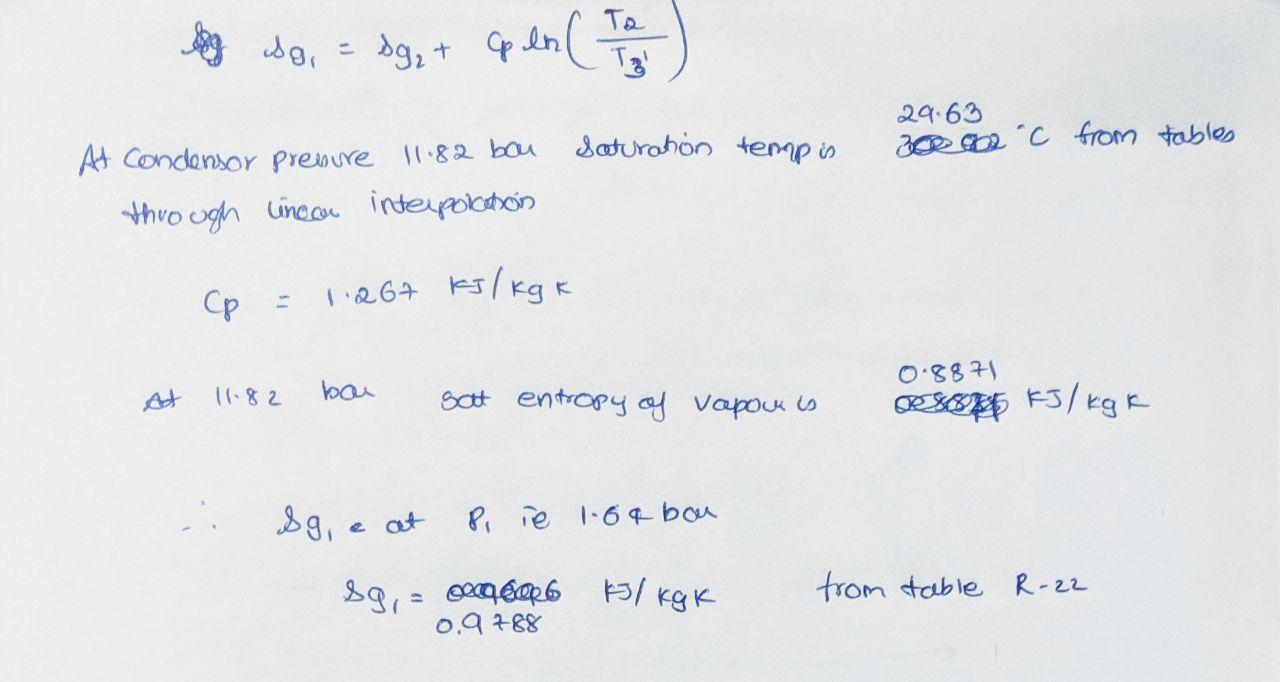 sg₁ = sg₂ + Cp ln ( T2 / T3' )
29.63
At Condensor pressure 11.82 bar Saturation temp is °C from tables
through linear interpolation
Cp = 1.267 KJ/Kg K
0.8871
At 11.82 bar sat entropy of vapour is KJ/Kg K
∴ sg₁ at P₁ ie 1.64 bar
sg₁ = KJ/KgK from table R-22
0.9788